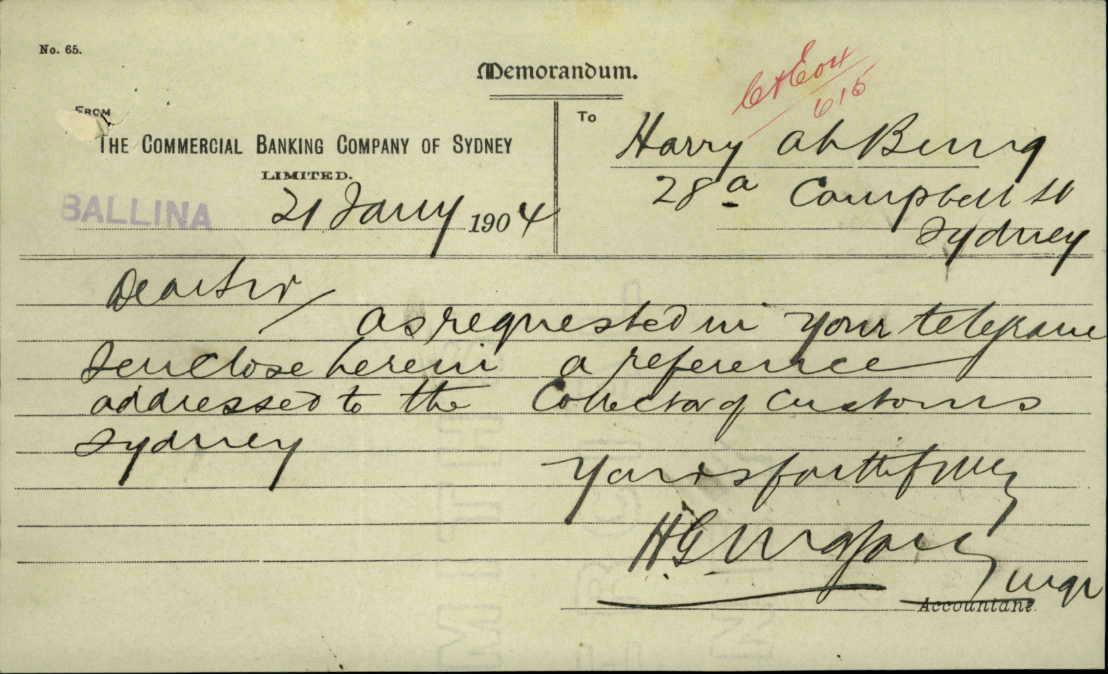 No. 65.
Memorandum.
615
FROM
THE COMMERCIAL BANKING COMPANY OF SYDNEY
LIMITED.
BALLINA 21 Jany 1904
To
Harry Ah Bung
28a Campbell St
Sydney
Dear Sir
As requested in your telegram
I enclose herein a reference
addressed to the Collector of Customs
Sydney
Yours faithfully
H G
mgr
Accountant.